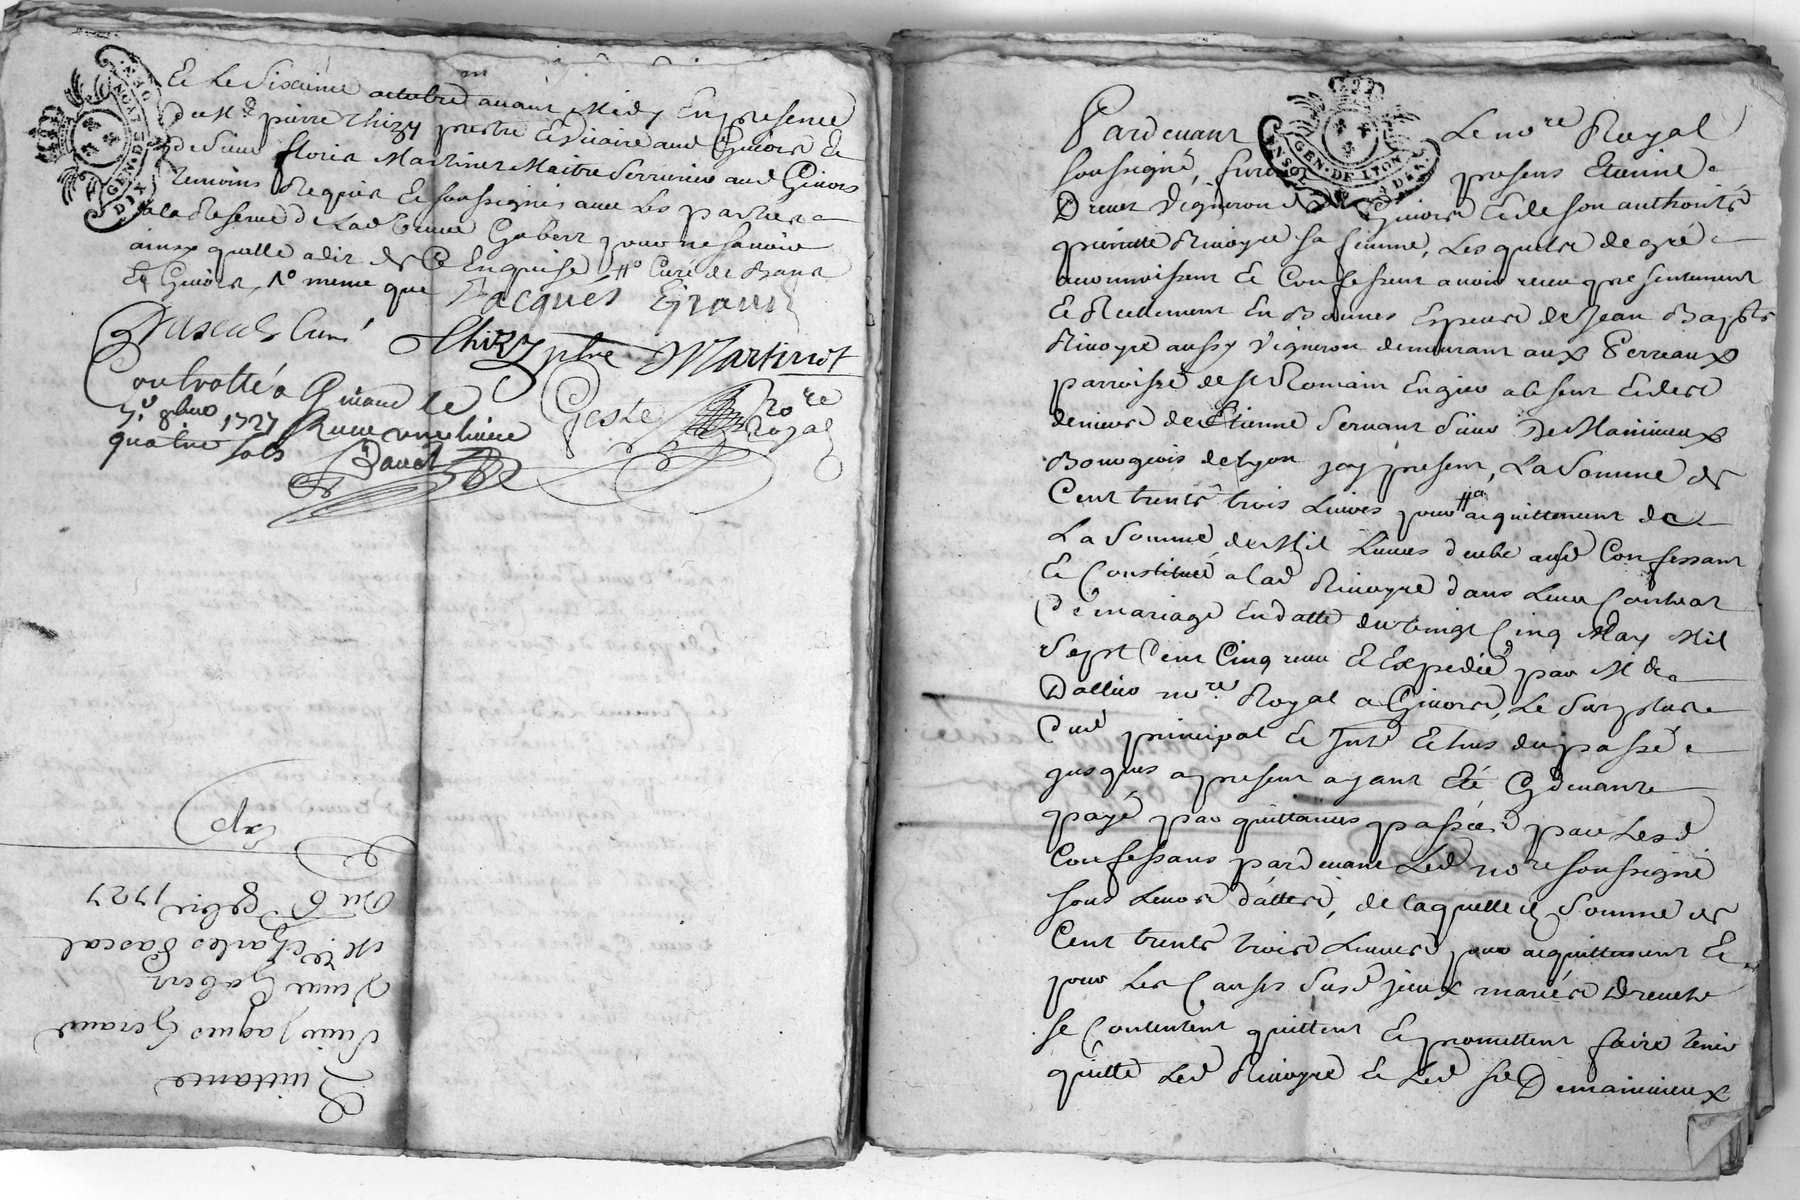 Et Le Sixieme octobre avant Midy En presence
De Mre pierre Thizy prestre Et Vicaire aud Givors Et
de Sieur floris Martinot Maitre Serrurier aud Givors
temoins Requis Et soussignés avec Les parties
a la Reserve de Lad Veuve Gabert pour ne savoir
ainsy quelle a dit de Ce Enquise
Et Givors, meme que
Jacques Giraud
Pascal Curé Thizy ptre Martinot
Controllé a Givors le
7e 8bre 1727 Receu une livre
quatre sols
Geste no re
Royal
GEN. DE LYON
DIX DEN
Exp
Du 6 8bre 1727
Mre Charles Pascal
Veuve Gabert
Sieur Jaques Geraud
Quittance
Pardevant Le no re Royal
soussigné, furent presens Etienne
Drevet Vigneron de Givors Et de son authorité
pierrette Rivoyre sa femme, Lesquels de gré
reconnoissent Et Confessent avoir receu presentement
Et Reellement En Bonnes Especes de Jean Baptte
Rivoyre aussy Vigneron demeurant aux Perreaux
parroisse de St Romain Engier absent Et des
deniers de Etienne Servant Sieur De Mainieux
Bourgeois de Lyon joy present, La Somme de
Cent trente trois Livres pour acquittement de
La Somme de Mil Livres deube ausd Confessant
Et Constitué a lad Rivoyre dans Leur Contrat
de mariage En datte du vingt Cinq May Mil
Sept Cent Cinq receu Et Expedié par Me
Dallier no re Royal a Givors, Le Surplus
dud principal Et Intts Echus du passé
jusques a present ayant Eté Cy devant
payé par quittances passées par Lesd
Confessans pardevant Led no re soussigné
sous Leurs dattes, de laquelle Somme de
Cent trente trois Livres pour acquittement Et
pour Les Causes Susd jceux mariés Drevet
se Contentent quittent Et promettent faire tenir
quitte Led Rivoyre Et Led Sr Demainieux